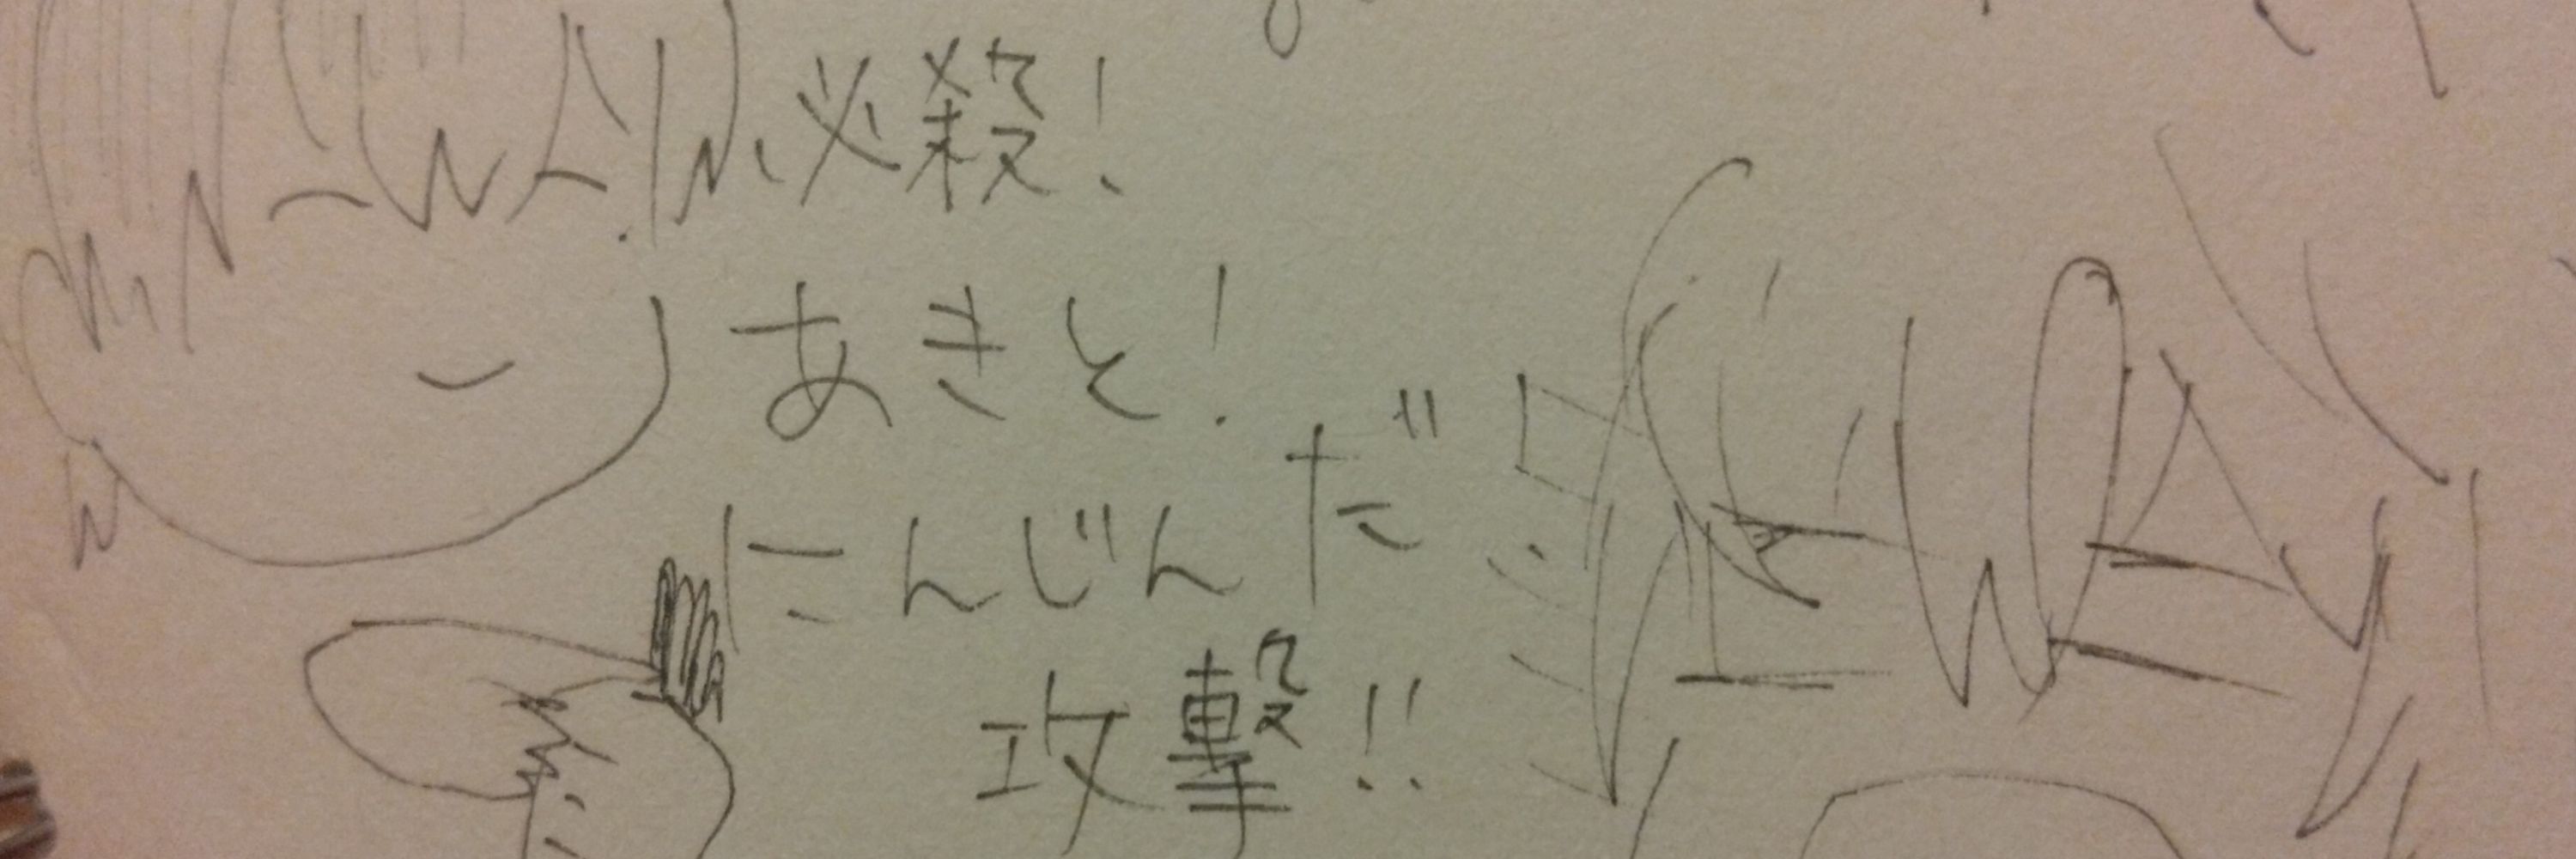 必殺!
あきと!
にんじんだ
攻撃!!